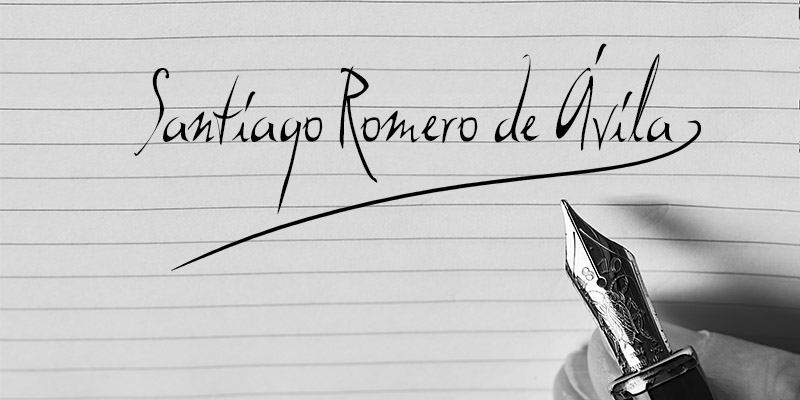 Santiago Romero de Ávila